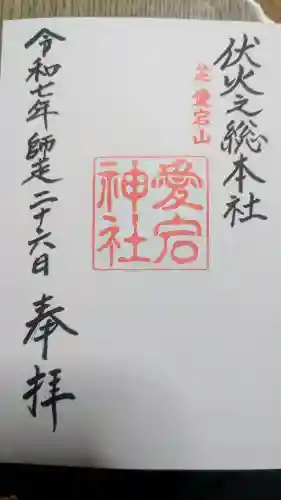 伏火之総本社
芝 愛宕山
愛宕
神社
令和七年 師走 二十六日
奉拝